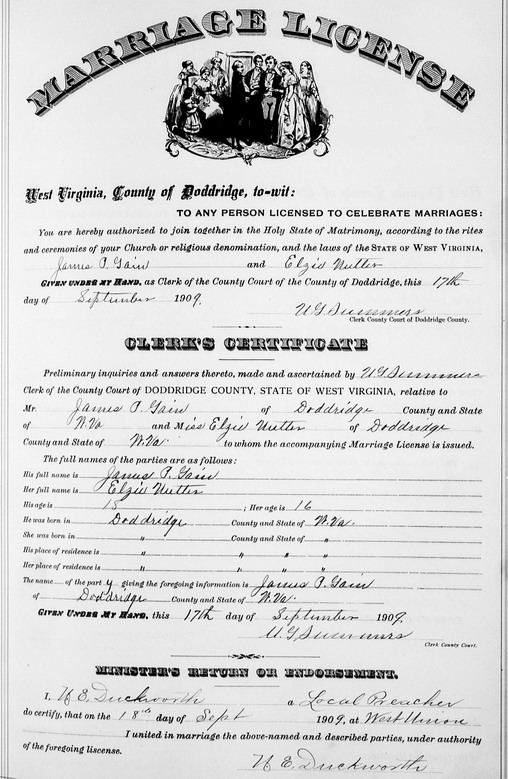 MARRIAGE LICENSE
West Virginia, County of Doddridge, to-wit:
TO ANY PERSON LICENSED TO CELEBRATE MARRIAGES:
You are hereby authorized to join together in the Holy State of Matrimony, according to the rites
and ceremonies of your Church or religious denomination, and the laws of the STATE OF WEST VIRGINIA,
James P. Gain and Elzie Nutter
GIVEN UNDER MY HAND, as Clerk of the County Court of the County of Doddridge, this 17th
day of September 1909.
U G Summers
Clerk County Court of Doddridge County.
CLERK'S CERTIFICATE
Preliminary inquiries and answers thereto, made and ascertained by U G Summers
Clerk of the County Court of DODDRIDGE COUNTY, STATE OF WEST VIRGINIA, relative to
Mr. James P. Gain of Doddridge County and State
of W.Va and Miss Elzie Nutter of Doddridge
County and State of W.Va. to whom the accompanying Marriage License is issued.
The full names of the parties are as follows:
His full name is James P. Gain
Her full name is Elzie Nutter
His age is 18 ; Her age is 16
He was born in Doddridge County and State of W.Va.
She was born in " County and State of "
His place of residence is " " " "
Her place of residence is " " " "
The name of the party giving the foregoing information is James P. Gain
of Doddridge County and State of W.Va.
GIVEN UNDER MY HAND, this 17th day of September 1909.
U G Summers
Clerk County Court.
MINISTER'S RETURN OR ENDORSEMENT.
I, N E Duckworth a Local Preacher
do certify, that on the 18th day of Sept 1909, at West Union
I united in marriage the above-named and described parties, under authority
of the foregoing liscense.
N E Duckworth